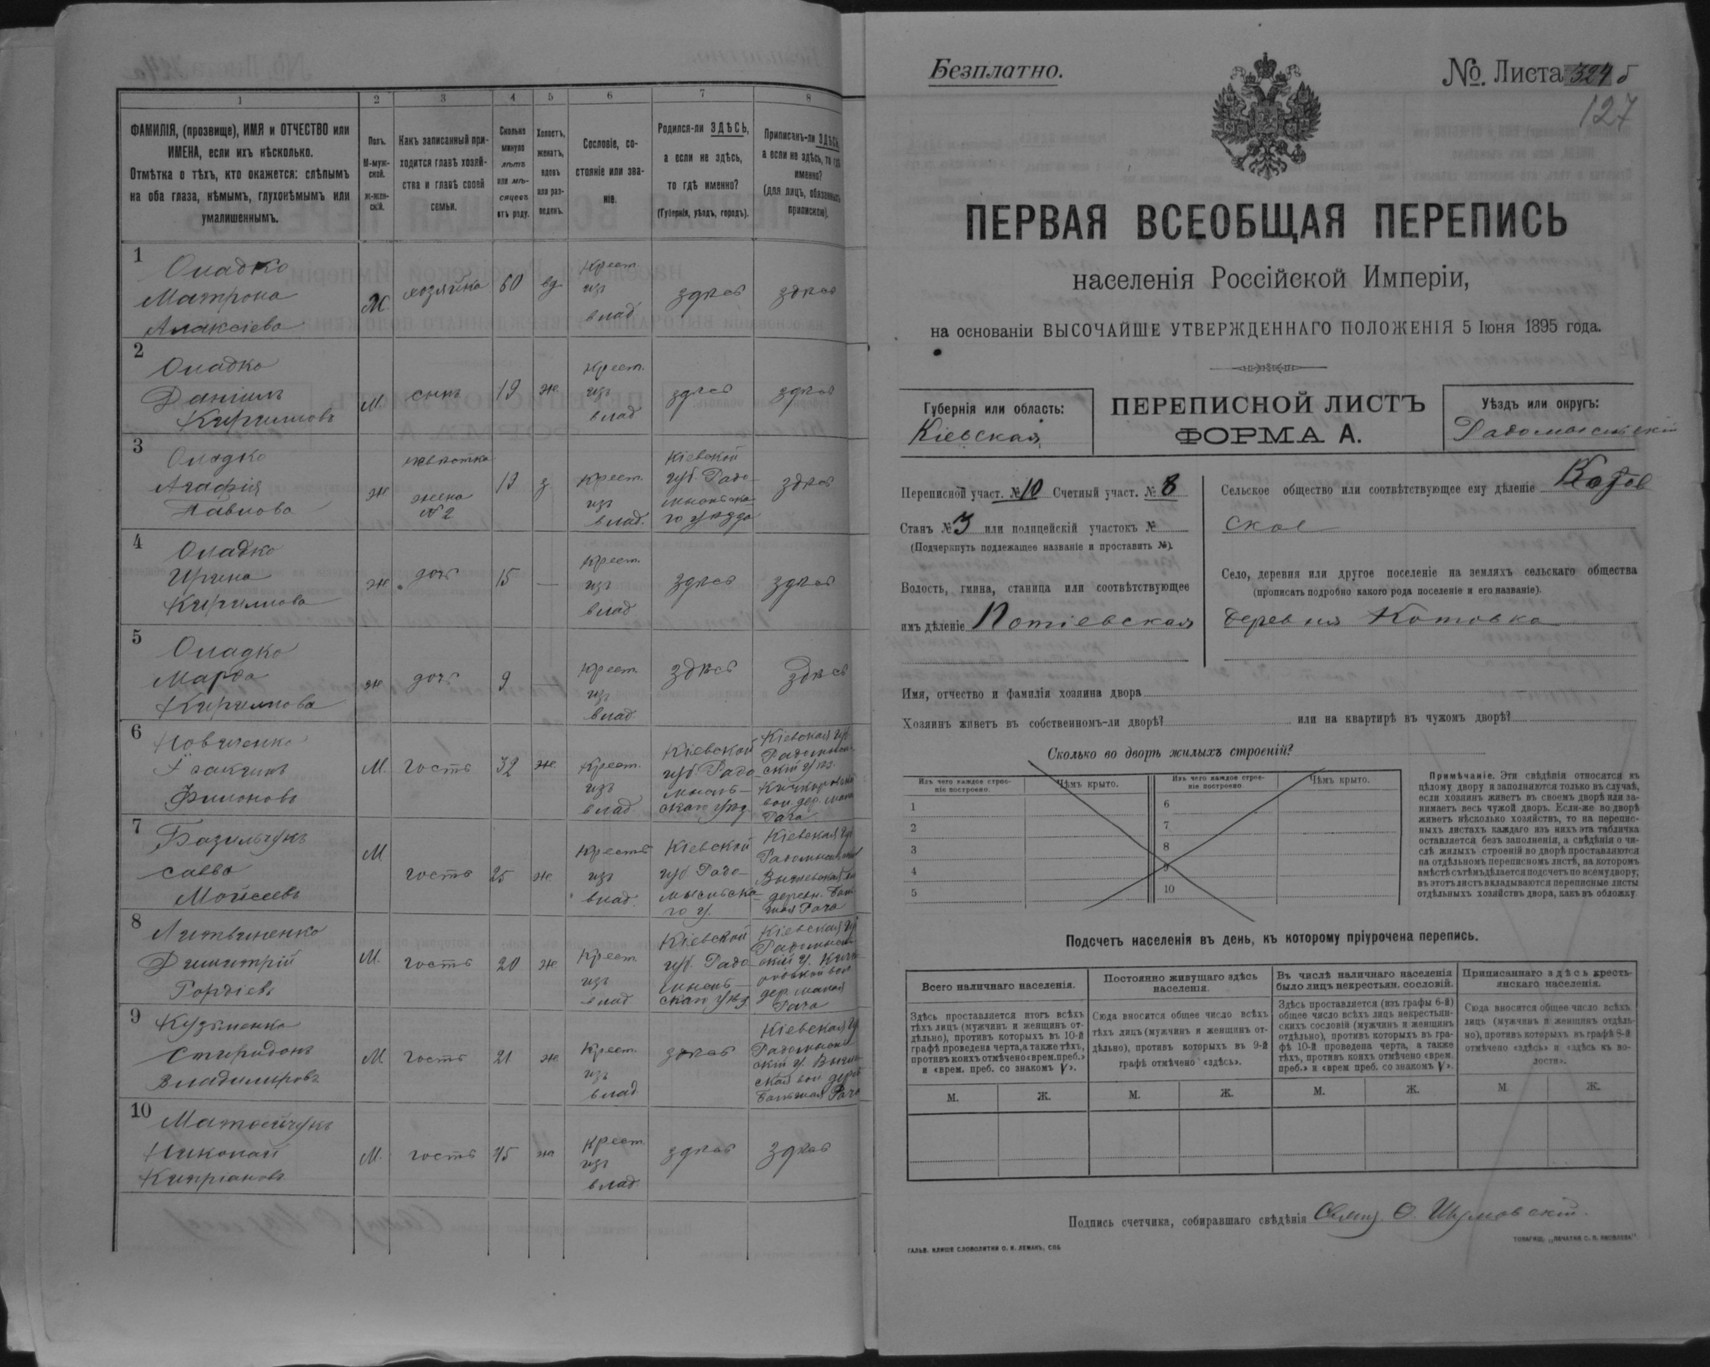 1
2
3
4
5
6
7
8
ФАМИЛІЯ, (прозвище), ИМЯ и ОТЧЕСТВО или
ИМЕНА, если ихъ нѣсколько.
Отмѣтка о тѣхъ, кто окажется: слѣпымъ
на оба глаза, нѣмымъ, глухонѣмымъ или
умалишеннымъ.
Полъ.
М-муж-
ской.
Ж-жен-
скій.
Какъ записанный при-
ходится главѣ хозяй-
ства и главѣ своей
семьи.
Сколько
минуло
лѣтъ
или мѣ-
сяцевъ
отъ роду.
Холостъ,
женатъ,
вдовъ
или раз-
веденъ.
Сословіе, со-
стояніе или зва-
ніе.
Родился-ли ЗДѢСЬ,
а если не здѣсь,
то гдѣ именно?
(Губернія, уѣздъ, городъ).
Приписанъ-ли ЗДѢСЬ,
а если не здѣсь, то гдѣ
именно?
(для лицъ, обязанныхъ
припискою).
1
Оладко
Матрона
Алексіева
Ж
хозяйка
60
вд
Крест
изъ
влад
здѣсь
здѣсь
2
Оладко
Даніилъ
Кириловъ
М
сынъ
19
ж
Крест.
изъ
влад
здѣсь
здѣсь
3
Оладко
Агафія
Павлова
ж
невѣстка
жена
№2
19
з
Крест
изъ
влад.
Кіевской
губ Радо-
мысльска-
го уѣзда
здѣсь
4
Оладко
Ирина
Кирилова
ж
дочь
15
—
Крест
изъ
влад
здѣсь
здѣсь
5
Оладко
Марфа
Кирилова
ж
дочь
9
—
Крест
изъ
влад
здѣсь
здѣсь
6
Іоакимъ
Филоновъ
М.
гость
32
ж
Крест.
изъ
влад
Кіевской
губ Радо-
мысль-
скаго уѣзд
Кіевская гу
7
Базильчукъ
Савва
Мойсеевъ
М
гость
25
ж
Крестъ
изъ
влад.
Кіевской
губ Радо-
мысльска-
го у.
Кіевская гу
8
Литвиненко
Димитрій
Гордіевъ
М.
гость
20
ж
Крест
изъ
влад
Кіевской
губ. Радо-
мысль-
скаго уѣзд
Кіевская гу
дер малая
Рача
9
Кузьменко
Спиридонъ
Владиміровъ
М
гость
21
ж
Крест.
изъ
влад
здѣсь
Кіевская гу
большая Рача
10
Матвійчукъ
Николай
Кипріановъ
М.
гость
45
ж
Крест
изъ
влад
здѣсь
здѣсь
Безплатно.
№. Листа 324 б
127
ПЕРВАЯ ВСЕОБЩАЯ ПЕРЕПИСЬ
населенія Россійской Имперіи,
на основаніи ВЫСОЧАЙШЕ УТВЕРЖДЕННАГО ПОЛОЖЕНІЯ 5 Іюня 1895 года.
Губернія или область:
Кіевская
ПЕРЕПИСНОЙ ЛИСТЪ
ФОРМА А.
Уѣздъ или округъ:
Радомысльскій
Переписной участ. № 10 Счетный участ. № 8
Станъ № 3 или полицейскій участокъ №
(Подчеркнуть подлежащее названіе и проставить №).
Волость, гмина, станица или соотвѣтствующее
имъ дѣленіе Потіевская
Сельское общество или соотвѣтствующее ему дѣленіе
ское
Село, деревня или другое поселеніе на земляхъ сельскаго общества
(прописать подробно какого рода поселеніе и его названіе).
деревня Котовка
Имя, отчество и фамилія хозяина двора
Хозяинъ живетъ въ собственномъ-ли дворѣ? или на квартирѣ въ чужомъ дворѣ?
Сколько во дворѣ жилыхъ строеній?
Изъ чего каждое строе-
ніе построено.
Чѣмъ крыто.
Изъ чего каждое строе-
ніе построено.
Чѣмъ крыто.
1
2
3
4
5
6
7
8
9
10
Примѣчаніе. Эти свѣдѣнія относятся къ
цѣлому двору и заполняются только въ случаѣ,
если хозяинъ живетъ въ своемъ дворѣ или за-
нимаетъ весь чужой дворъ. Если-же во дворѣ
живетъ нѣсколько хозяйствъ, то на перепис-
ныхъ листахъ каждаго изъ нихъ эта табличка
оставляется безъ заполненія, а свѣдѣнія о чи-
слѣ жилыхъ строеній во дворѣ проставляются
на отдѣльномъ переписномъ листѣ, на которомъ
вмѣстѣ съ тѣмъ дѣлается подсчетъ по всему двору;
въ этотъ листъ вкладываются переписные листы
отдѣльныхъ хозяйствъ двора, какъ въ обложку
Подсчетъ населенія въ день, къ которому пріурочена перепись.
Всего наличнаго населенія.
Здѣсь проставляется итогъ всѣхъ
тѣхъ лицъ (мужчинъ и женщинъ от-
дѣльно), противъ которыхъ въ 10-й
графѣ проведена черта, а также тѣхъ,
противъ коихъ отмѣчено «врем. преб.»
и «врем. преб. со знакомъ V».
Постоянно живущаго здѣсь
населенія.
Сюда вносится общее число всѣхъ
тѣхъ лицъ (мужчинъ и женщинъ от-
дѣльно), противъ которыхъ въ 9-й
графѣ отмѣчено «здѣсь».
Въ числѣ наличнаго населенія
было лицъ некрестьян. сословій.
Здѣсь проставляется (изъ графы 6-й)
общее число всѣхъ лицъ некрестьян-
скихъ сословій (мужчинъ и женщинъ
отдѣльно), противъ которыхъ въ гра-
фѣ 10-й проведена черта, а также
тѣхъ, противъ коихъ отмѣчено «врем.
преб.» и «врем преб. со знакомъ V».
Приписаннаго здѣсь кресть-
янскаго населенія.
Сюда вносится общее число всѣхъ
лицъ (мужчинъ и женщинъ отдѣль-
но), противъ которыхъ въ графѣ 8-й
отмѣчено «здѣсь» и «здѣсь къ во-
лости».
М.
Ж.
М.
Ж.
М.
Ж.
М.
Ж.
Подпись счетчика, собиравшаго свѣдѣнія Ѳ. Шумовскій.
ГАЛЬВ. КЛИШЕ СЛОВОЛИТНИ О. И. ЛЕМАНЪ, СПБ
ТОВАРИЩ. „ПЕЧАТНЯ С. П. ЯКОВЛЕВА".